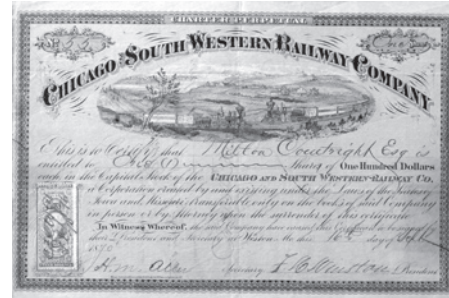 CHARTER PERPETUAL
No 52 One
CHICAGO AND SOUTH WESTERN RAILWAY COMPANY
This is to Certify that Milton Courtright Esq is
entitled to One Shares of One Hundred Dollars
each in the Capital Stock of the CHICAGO AND SOUTH WESTERN RAILWAY CO.
a Corporation created by and existing under the Laws of the States of
Iowa and Missouri, transferable only on the books of said Company
in person or by Attorney upon the surrender of this certificate
In Witness Whereof, the said Company have caused this Certificate to be
their President and Secretary at this day of
1870
Secretary F. H. Winston President